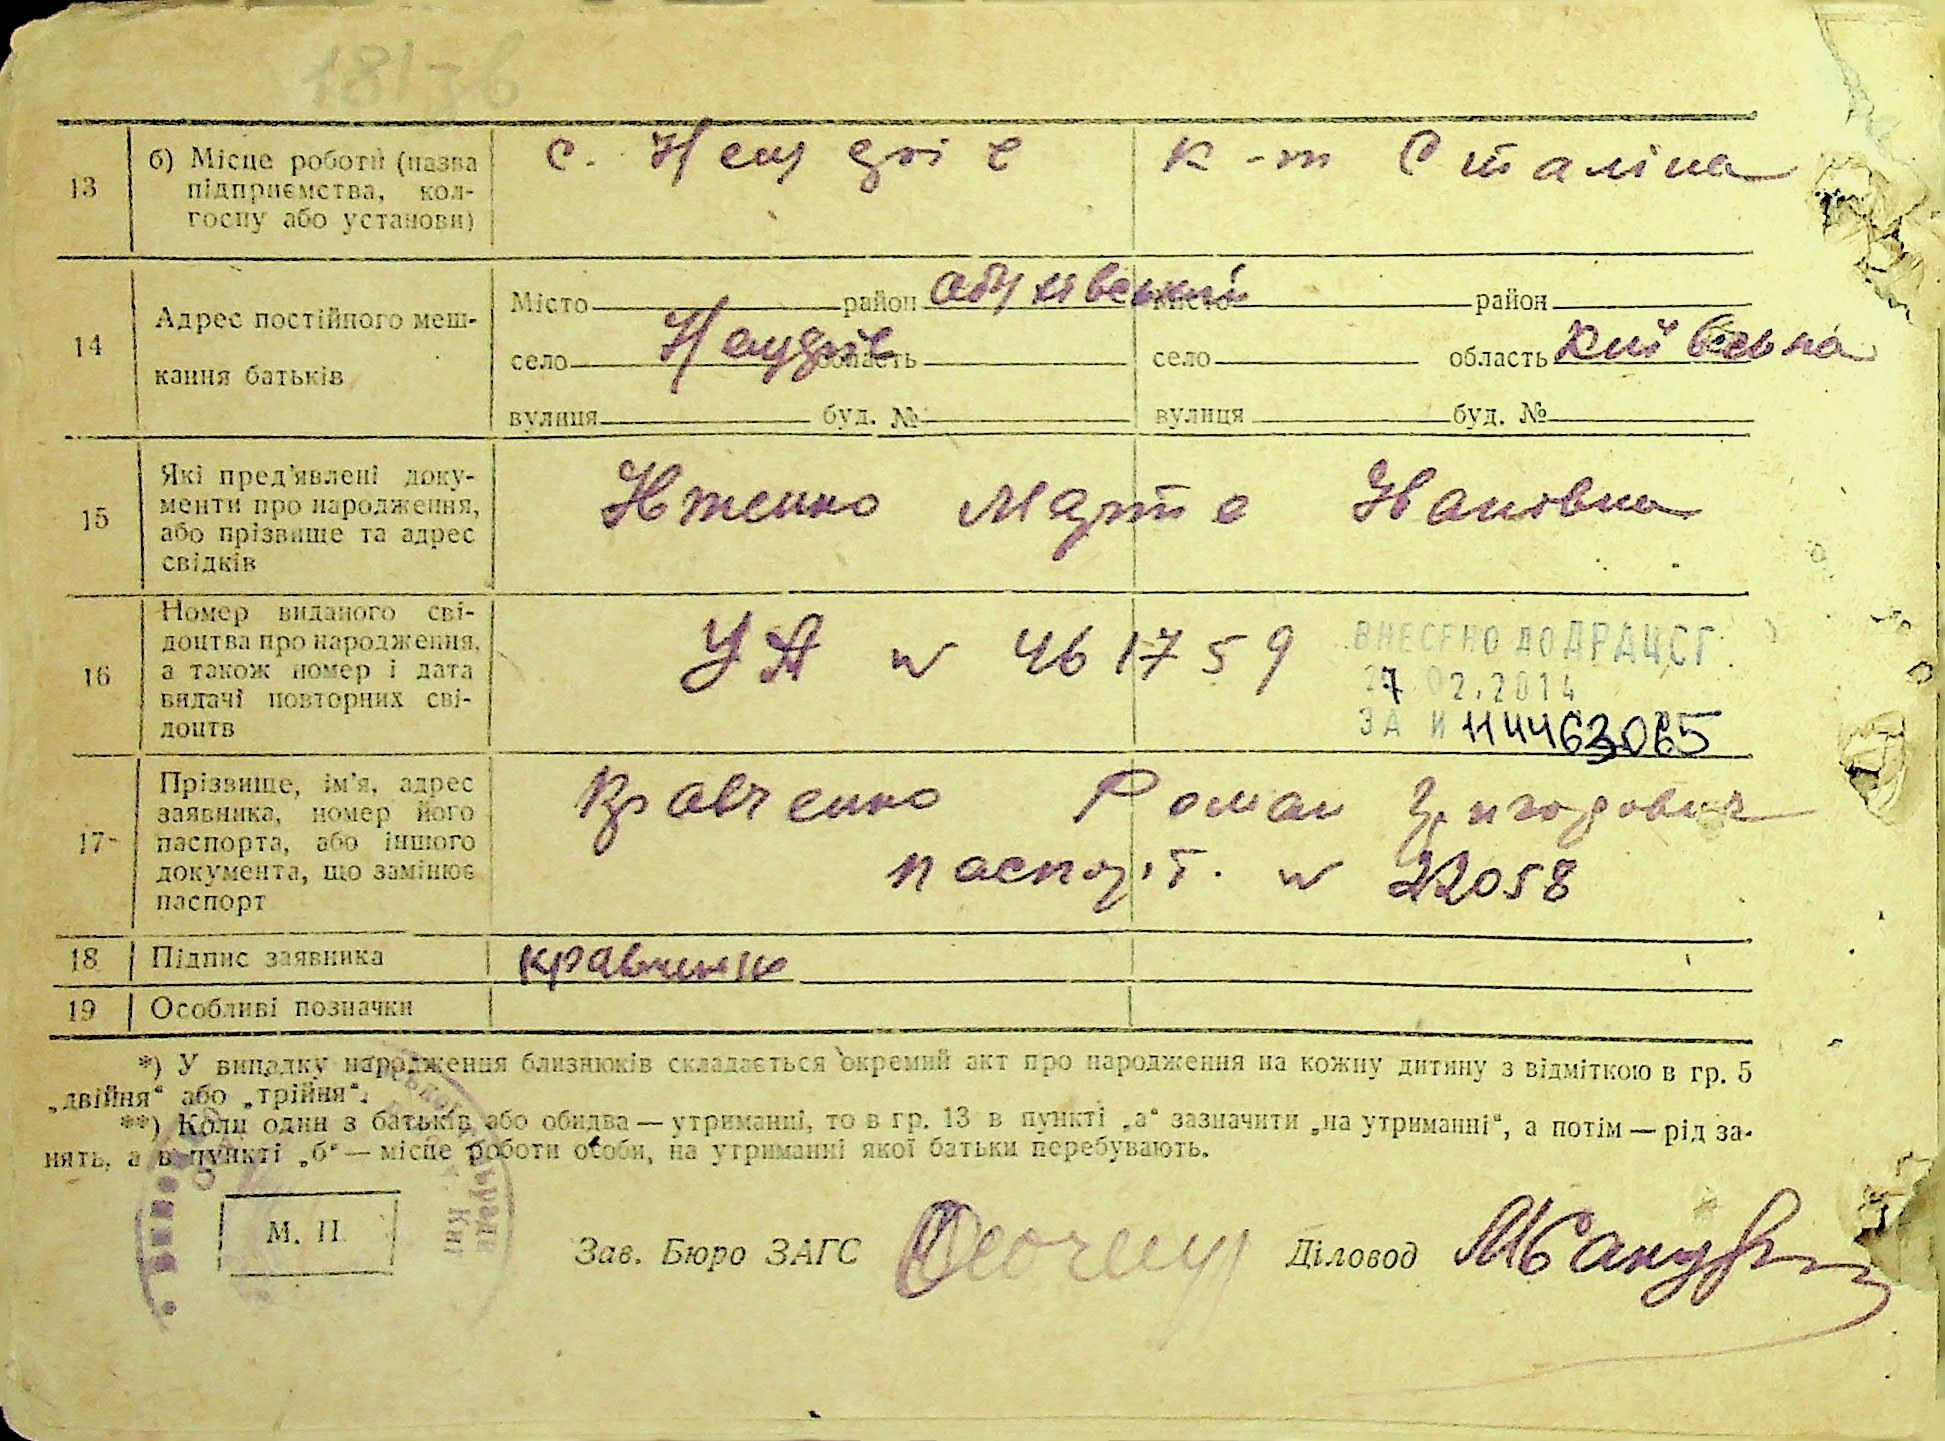 13 б) Місце роботи (назва підприємства, колгоспу або установи) с. Нещерів к-т Сталіна
14 Адрес постійного мешкання батьків
Місто район Обухівський місто район
село Нещерів область село область Київська
вулиця буд. № вулиця буд. №
15 Які пред'явлені документи про народження, або прізвище та адрес свідків
Марта Івановна
16 Номер виданого свідоцтва про народження, а також номер і дата видачі повторних свідоцтв
УА № 461759
ВНЕСЕНО ДО ДРАЦСГ
27 02.2014
ЗА №
17 Прізвище, ім'я, адрес заявника, номер його паспорта, або іншого документа, що замінює паспорт
Кравченко Роман Григорович
паспорт. № 22058
18 Підпис заявника
19 Особливі позначки
*) У випадку народження близнюків складається окремий акт про народження на кожну дитину з відміткою в гр. 5
„двійня“ або „трійня“.
**) Коли один з батьків або обидва — утриманні, то в гр. 13 в пункті „а“ зазначити „на утриманні“, а потім — рід за-
нять, а в пункті „б“ — місце роботи особи, на утриманні якої батьки перебувають.
М. П.
Зав. Бюро ЗАГС Діловод